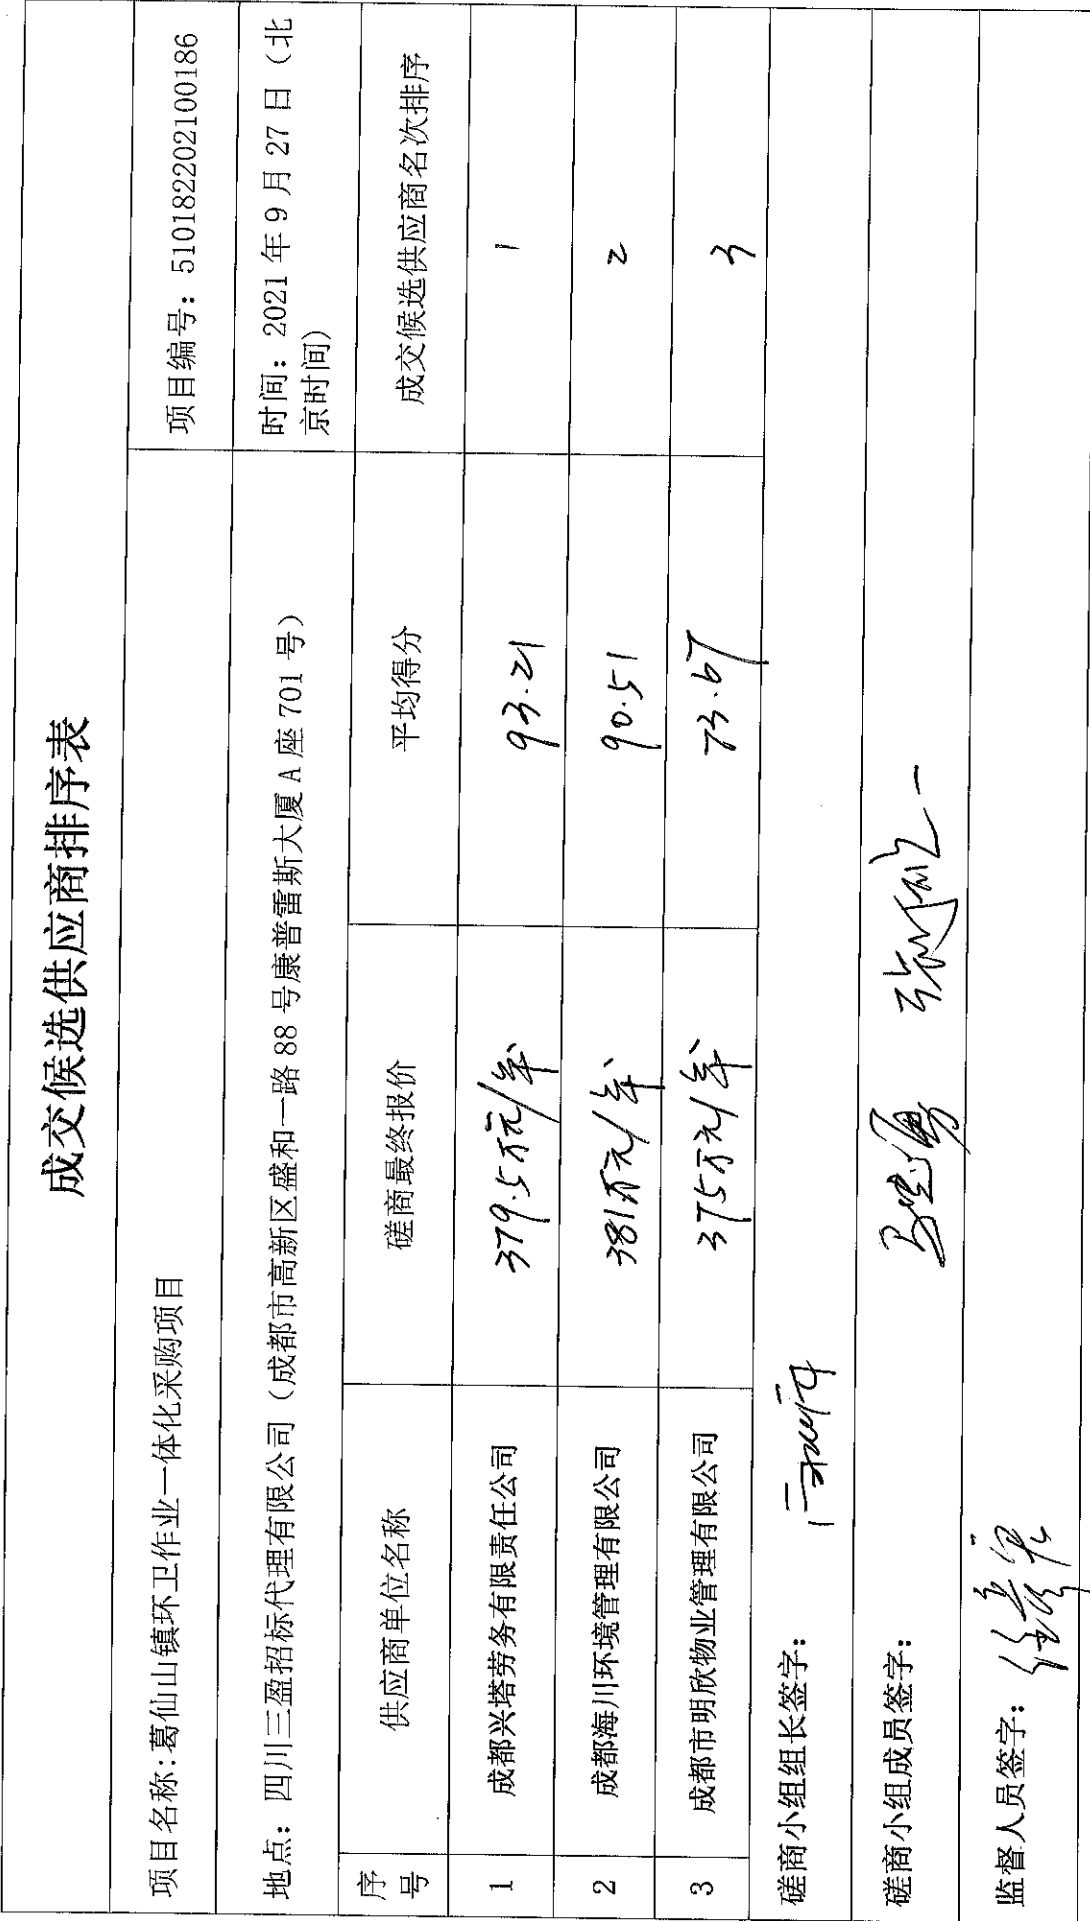 成交候选供应商排序表
项目名称:葛仙山镇环卫作业一体化采购项目
项目编号：510182202100186
地点：四川三盈招标代理有限公司（成都市高新区盛和一路 88 号康普雷斯大厦 A 座 701 号）
时间：2021 年 9 月 27 日（北
京时间）
序号 供应商单位名称 磋商最终报价 平均得分 成交候选供应商名次排序
1 成都兴塔劳务有限责任公司 379.5万元/年 93.21 1
2 成都海川环境管理有限公司 381万元/年 90.51 2
3 成都市明欣物业管理有限公司 375万元/年 73.67 3
磋商小组组长签字：
磋商小组成员签字：
监督人员签字：